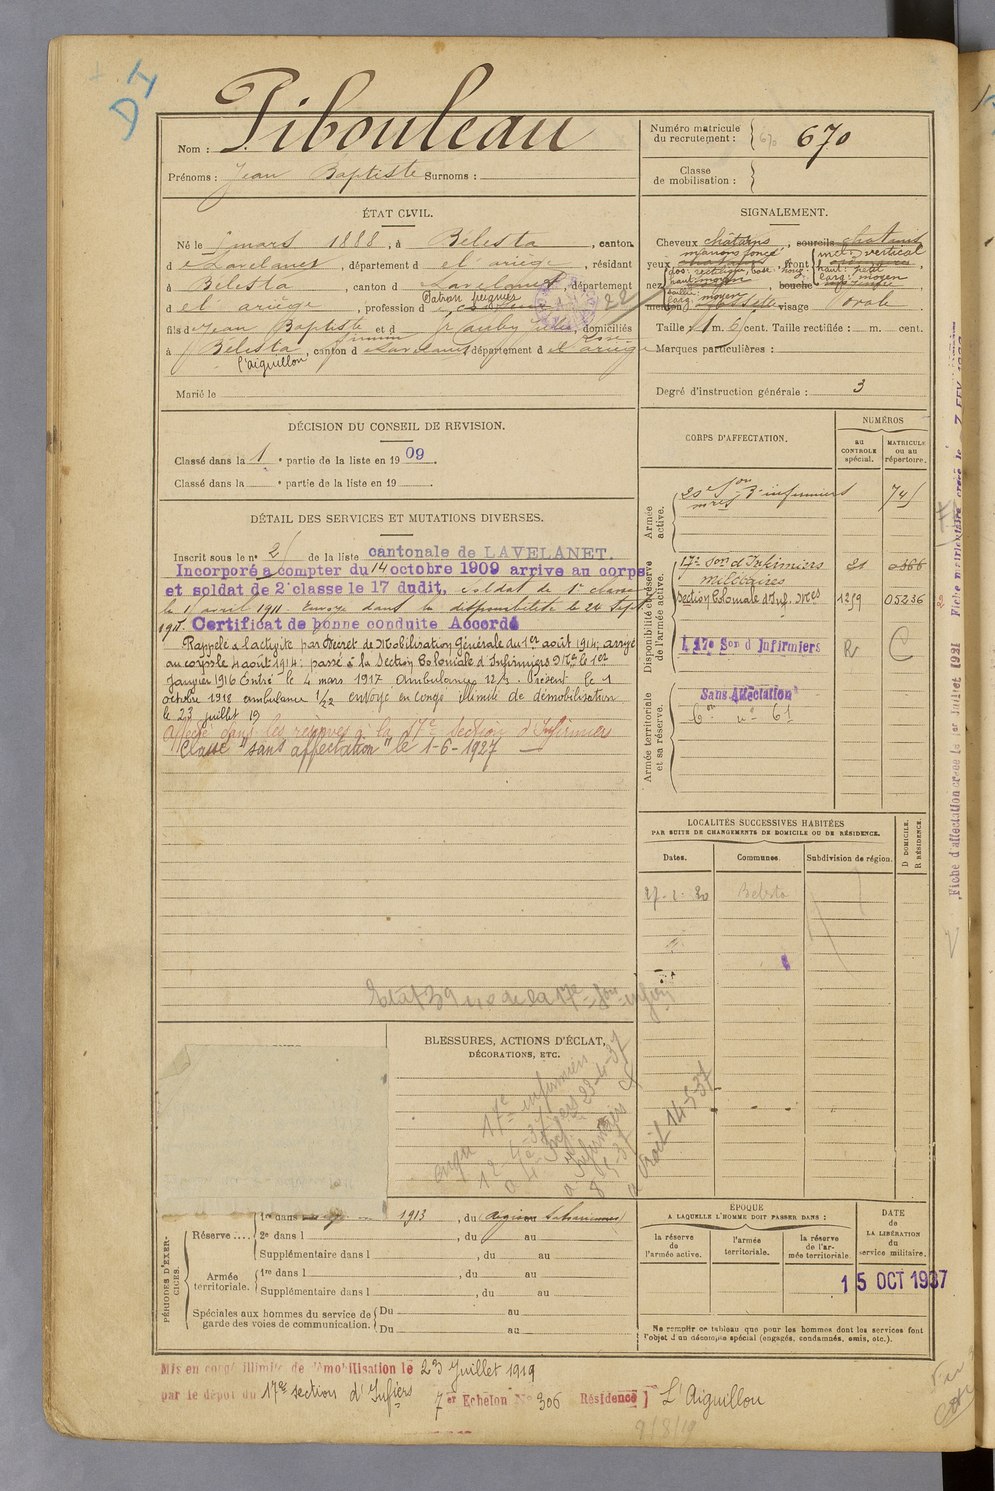 DI
Nom : Pibouleau
Prénoms : Jean Baptiste Surnoms :
Numéro matricule du recrutement : 670 670
Classe de mobilisation :
ÉTAT CIVIL.
Né le mars 1888, à Bélesta, canton
d e Lavelanet, département d el ariège, résidant
à Bélesta, canton d Lavelanet, département
Patron peignes 22
d el ariège, profession d
fils de Jean Baptiste et d , domiciliés
à Bélesta, canton d e Lavelanet département d el ariège
l'aiguillon
Marié le
SIGNALEMENT.
Cheveux châtains, sourcils chatains
marrons foncé
yeux , front
incl: vertical
haut: petit
larg: moyen
nez , bouche
haut: moyen
larg: moyen
menton visage ovale
Taille : 1 m. 6 cent. Taille rectifiée : m. cent.
Marques particulières :
Degré d'instruction générale : 3
DÉCISION DU CONSEIL DE REVISION.
Classé dans la 1 e partie de la liste en 1909.
Classé dans la e partie de la liste en 19 .
DÉTAIL DES SERVICES ET MUTATIONS DIVERSES.
Inscrit sous le n° 2 de la liste cantonale de LAVELANET.
Incorporé à compter du 14 octobre 1909 arrive au corps
et soldat de 2e classe le 17 dudit, soldat de 1e classe
le 11 avril 1911. Envoyé dans la disponibilité le 24 Sept.
1911. Certificat de bonne conduite Accordé
Rappelé à l'activité par Décret de Mobilisation Générale du 1er août 1914; arrivé
au corps le 4 août 1914 : passé à la Section Coloniale d'Infirmiers Mres le 1er
Janvier 1916 Entré le 4 mars 1917 Ambulance 12/3 Présent le 1
octobre 1918 ambulance 1/22 envoyé en congé illimité de démobilisation
le 23 juillet 19
Affecté dans les réserves à la 17e Section d'Infirmiers
Classé "sans affectation" le 1-6-1927
CORPS D'AFFECTATION.
NUMÉROS
au CONTROLE spécial.
MATRICULE ou au répertoire.
Armée active.
mres d'infirmiers 741
Disponibilité et réserve de l'armée active.
17e Son d'Infirmiers militaires 21 0866
Section Coloniale d'Inf. Mres 1219 05236
17e Son d'Infirmiers R C
Armée territoriale et sa réserve.
Sans Affectation
n° 61
LOCALITÉS SUCCESSIVES HABITÉES
PAR SUITE DE CHANGEMENTS DE DOMICILE OU DE RÉSIDENCE.
Dates. Communes. Subdivision de région. D DOMICILE. R RÉSIDENCE.
27-2-30 Belesta
de la 17e Son infirm
BLESSURES, ACTIONS D'ÉCLAT,
DÉCORATIONS, ETC.
17e infirmiers
23-4-37
8-5-37
14-5-37
PÉRIODES D'EXERCICES.
Réserve ....
1re dans 1913, du (Régions Sahariennes)
2e dans l , du au
Supplémentaire dans l , du au
Armée territoriale.
1re dans l , du au
Supplémentaire dans l , du au
Spéciales aux hommes du service de garde des voies de communication.
Du au
Du au
ÉPOQUE
A LAQUELLE L'HOMME DOIT PASSER DANS :
la réserve de l'armée active.
l'armée territoriale.
la réserve de l'armée territoriale.
DATE de LA LIBÉRATION du service militaire.
15 OCT 1937
Ne remplir ce tableau que pour les hommes dont les services font
l'objet d'un décompte spécial (engagés, condamnés, omis, etc.).
Mis en congé illimité de démobilisation le 23 Juillet 1919
par le dépôt du 17e section d'Infiers 7er Echelon N° 306 Résidence L'Aiguillon
9/8/19
Fiche d'affectation créée le 1er Juillet 1921 Fiche matriculaire créée le 7 FEV